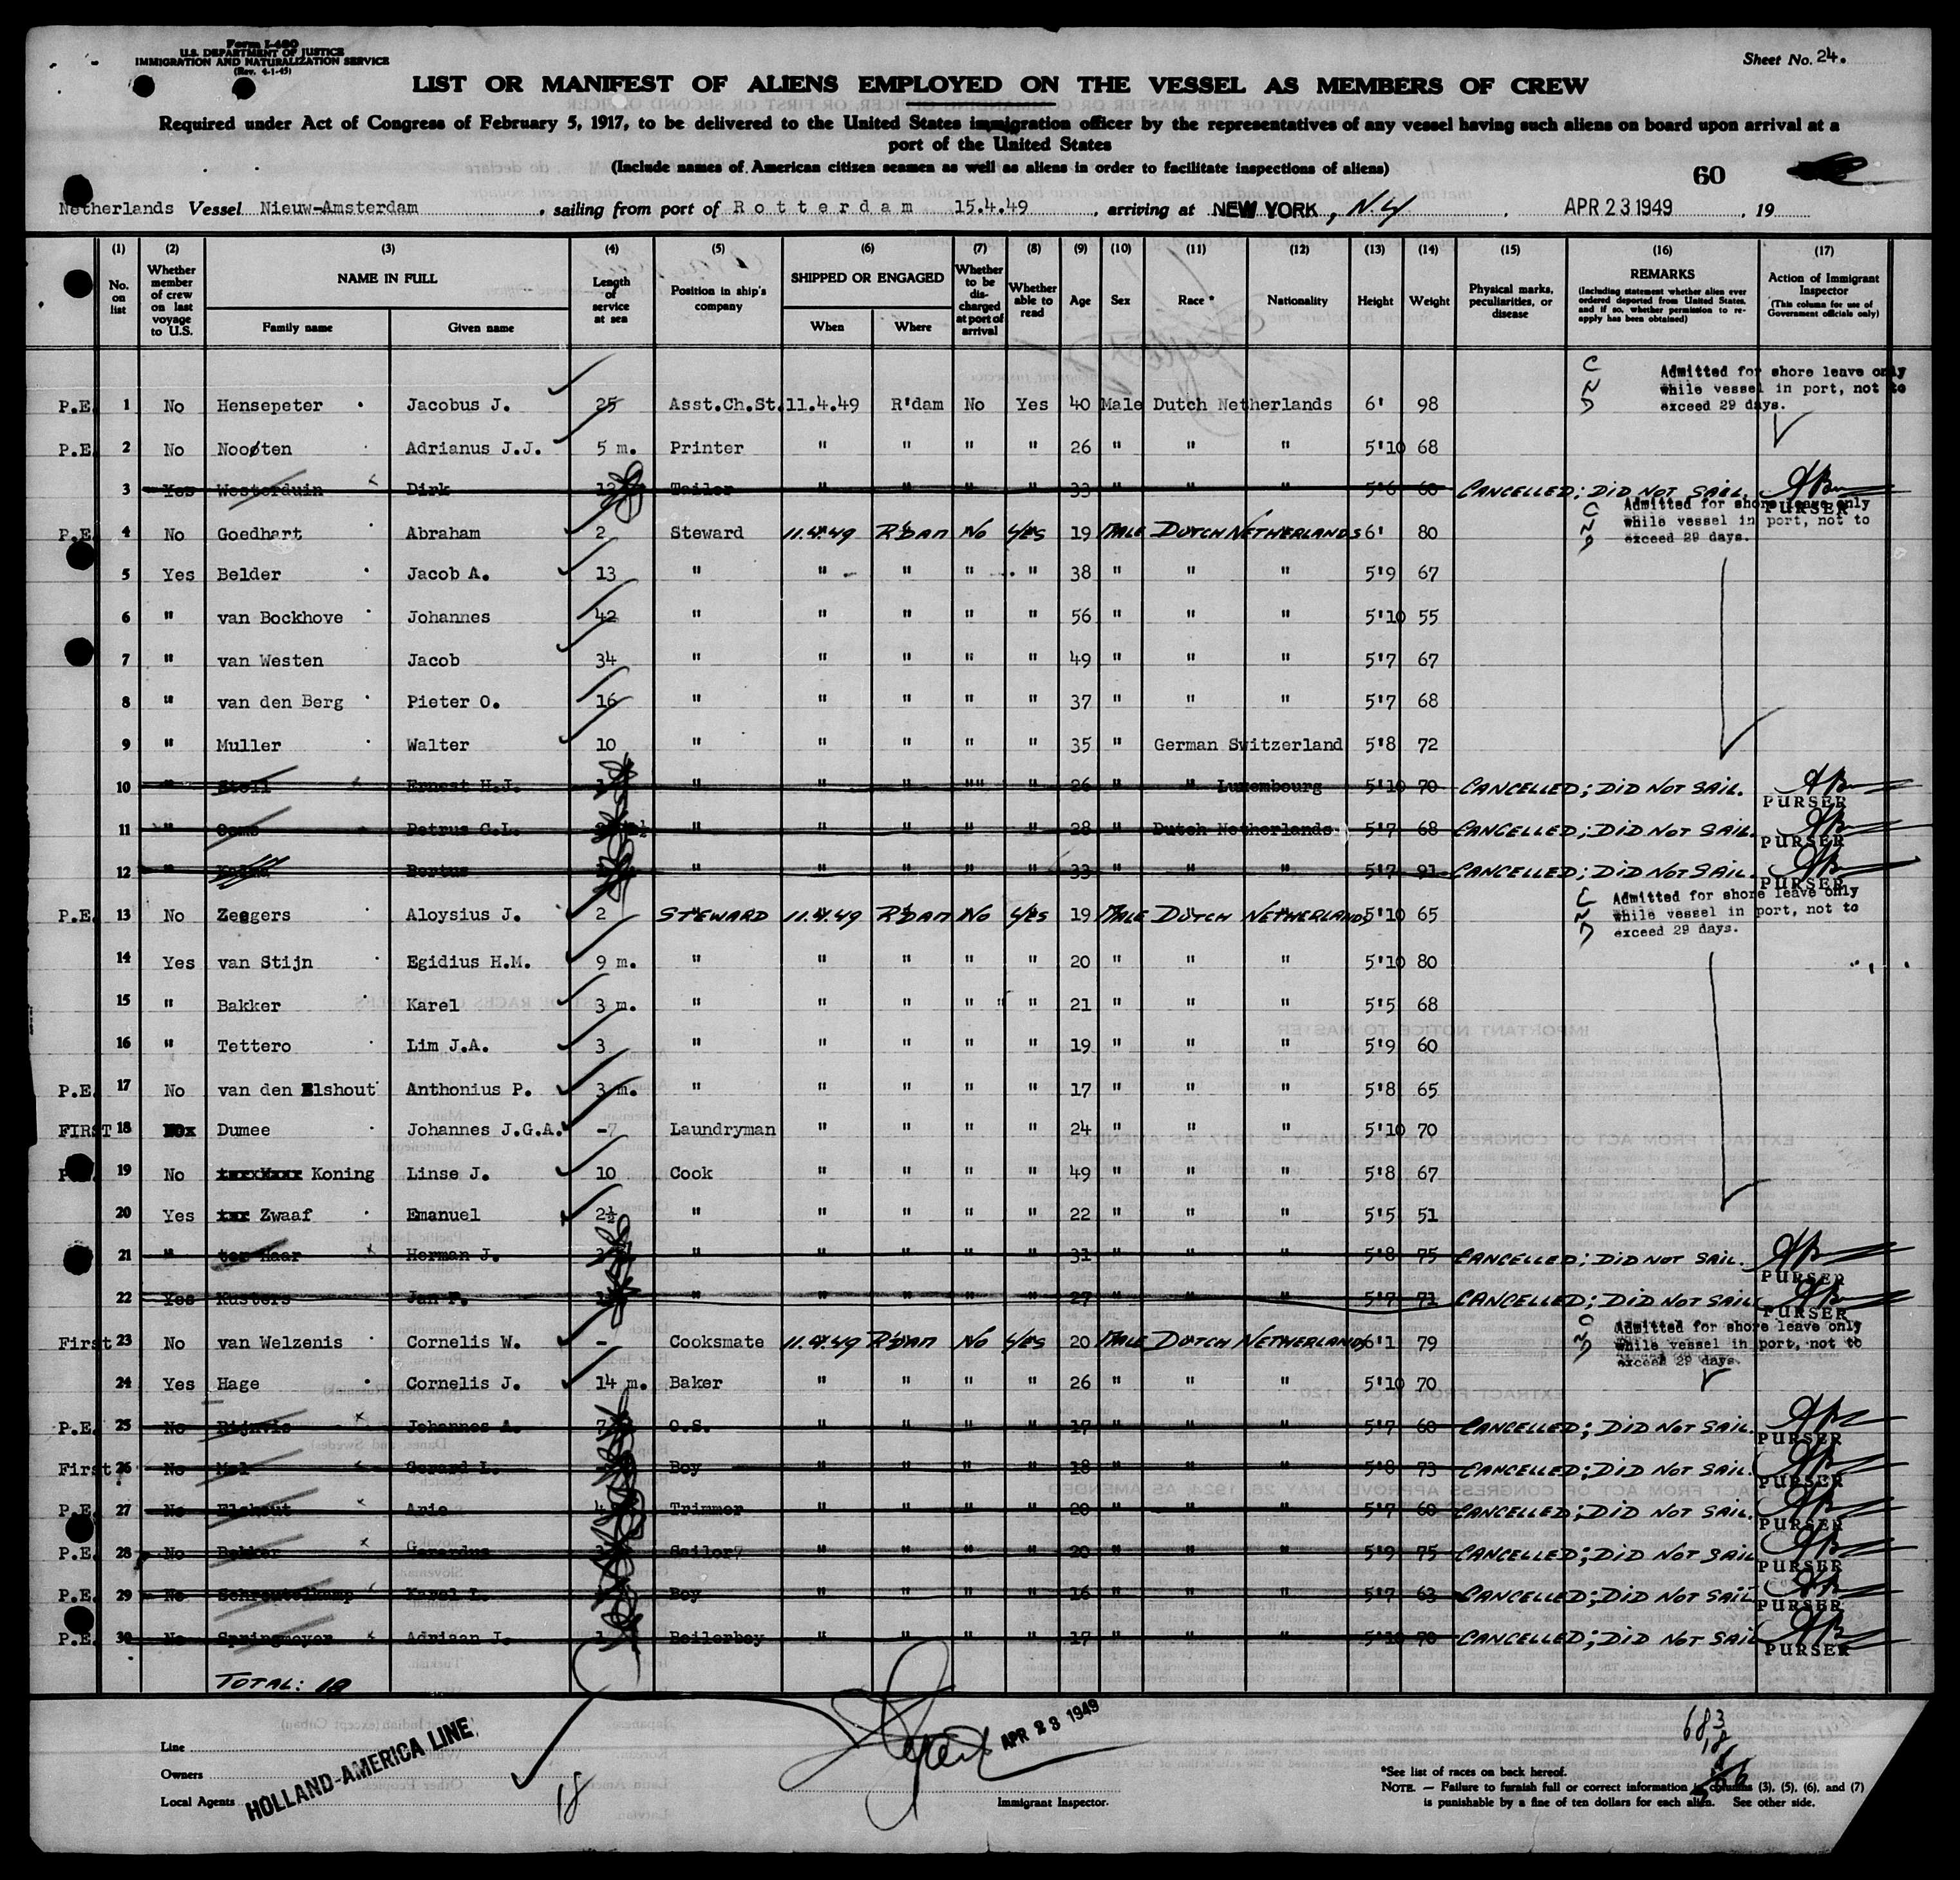 Form I-480
U.S. DEPARTMENT OF JUSTICE
IMMIGRATION AND NATURALIZATION SERVICE
(Rev. 4-1-45)
Sheet No. 24.
LIST OR MANIFEST OF ALIENS EMPLOYED ON THE VESSEL AS MEMBERS OF CREW
Required under Act of Congress of February 5, 1917, to be delivered to the United States immigration officer by the representatives of any vessel having such aliens on board upon arrival at a
port of the United States
(Include names of American citizen seamen as well as aliens in order to facilitate inspections of aliens)
60
Netherlands Vessel Nieuw-Amsterdam , sailing from port of Rotterdam 15.4.49 , arriving at NEW YORK, N.Y. , APR 23 1949 , 19
(1) (2) (3) (4) (5) (6) (7) (8) (9) (10) (11) (12) (13) (14) (15) (16) (17)
No. on list Whether member of crew on last voyage to U.S. NAME IN FULL Family name Given name Length of service at sea Position in ship's company SHIPPED OR ENGAGED When Where Whether to be discharged at port of arrival Whether able to read Age Sex Race * Nationality Height Weight Physical marks, peculiarities, or disease REMARKS (Including statement whether alien ever ordered deported from United States, and if so, whether permission to re-apply has been obtained) Action of Immigrant Inspector (This column for use of Government officials only)
Admitted for shore leave only
while vessel in port, not to
exceed 29 days.
P.E. 1 No Hensepeter Jacobus J. 25 Asst.Ch.St. 11.4.49 R'dam No Yes 40 Male Dutch Netherlands 6' 98
P.E. 2 No Nooten Adrianus J.J. 5 m. Printer " " " " 26 " " " 5'10 68
3 Yes Westerduin Dirk 12 Tailor " " " " 33 " " " 5'6 60 CANCELLED; DID NOT SAIL. PURSER
Admitted for shore leave only
while vessel in port, not to
exceed 29 days.
P.E. 4 No Goedhart Abraham 2 Steward 11.4.49 R'DAM No YES 19 MALE DUTCH NETHERLANDS 6' 80
5 Yes Belder Jacob A. 13 " " " " " 38 " " " 5'9 67
6 " van Bockhove Johannes 42 " " " " " 56 " " " 5'10 55
7 " van Westen Jacob 34 " " " " " 49 " " " 5'7 67
8 " van den Berg Pieter O. 16 " " " " " 37 " " " 5'7 68
9 " Muller Walter 10 " " " " " 35 " German Switzerland 5'8 72
10 " Stoll Ernest H.J. " " " "" " 26 " " Luxembourg 5'10 70 CANCELLED; DID NOT SAIL. PURSER
11 " Petrus C.L. " " " " " 28 " Dutch Netherlands 5'7 68 CANCELLED; DID NOT SAIL. PURSER
12 " Bertus " " " " " 33 " " " 5'7 91 CANCELLED; DID NOT SAIL. PURSER
Admitted for shore leave only
while vessel in port, not to
exceed 29 days.
P.E. 13 No Zeegers Aloysius J. 2 STEWARD 11.4.49 R'DAM No YES 19 MALE DUTCH NETHERLANDS 5'10 65
14 Yes van Stijn Egidius H.M. 9 m. " " " " " 20 " " " 5'10 80
15 " Bakker Karel 3 m. " " " " " 21 " " " 5'5 68
16 " Tettero Lim J.A. 3 " " " " " 19 " " " 5'9 60
P.E. 17 No van den Elshout Anthonius P. 3 m. " " " " " 17 " " " 5'8 65
FIRST 18 Dumee Johannes J.G.A. - Laundryman " " " " 24 " " " 5'10 70
19 No Koning Linse J. 10 Cook " " " " 49 " " " 5'8 67
20 Yes Zwaaf Emanuel 2½ " " " " " 22 " " " 5'5 51
21 " ter Haar Herman J. " " " " " 31 " " " 5'8 75 CANCELLED; DID NOT SAIL. PURSER
22 Yes Kusters Jan P. " " " " " 27 " " " 5'7 71 CANCELLED; DID NOT SAIL PURSER
Admitted for shore leave only
while vessel in port, not to
exceed 29 days.
First 23 No van Welzenis Cornelis W. - Cooksmate 11.4.49 R'DAM No YES 20 MALE DUTCH NETHERLANDS 6'1 79
24 Yes Hage Cornelis J. 14 m. Baker " " " " 26 " " " 5'10 70
P.E. 25 No Rijnvis Johannes A. 7 O.S. " " " " 17 " " " 5'7 60 CANCELLED; DID NOT SAIL. PURSER
First 26 No Mol Gerard L. Boy " " " " 18 " " " 5'8 73 CANCELLED; DID NOT SAIL. PURSER
P.E. 27 No Elshout Arie 4 Trimmer " " " " 20 " " " 5'7 60 CANCELLED; DID NOT SAIL. PURSER
P.E. 28 No Bakker Gerardus 3 Sailor " " " " 20 " " " 5'9 75 CANCELLED; DID NOT SAIL PURSER
P.E. 29 No Schreutelkamp Karel L. Boy " " " " 16 " " " 5'7 63 CANCELLED; DID NOT SAIL PURSER
P.E. 30 No Springmeyer Adriaan J. 1 Boilerboy " " " " 17 " " " 5'10 70 CANCELLED; DID NOT SAIL PURSER
TOTAL: 18
Line
Owners
Local Agents
HOLLAND-AMERICA LINE.
18
APR 23 1949
Immigrant Inspector.
683
18
*See list of races on back hereof.
NOTE. — Failure to furnish full or correct information in columns (3), (5), (6), and (7)
is punishable by a fine of ten dollars for each alien. See other side.